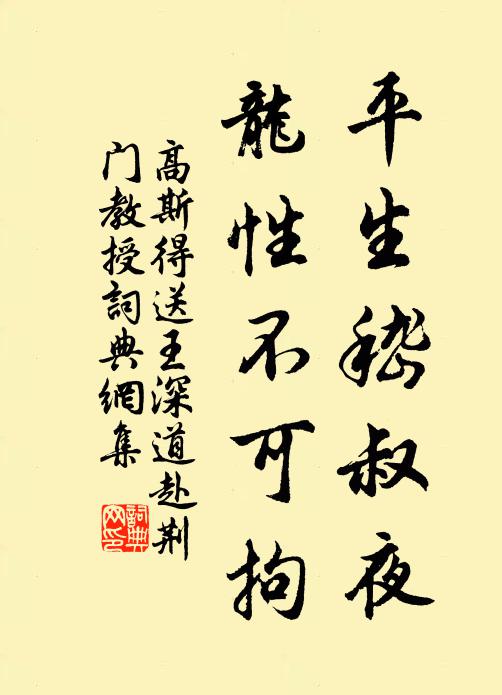 平生嵇叔夜
龍性不可拘
高斯得送王深道赴荆
门教授詞典網集
詞典
网印